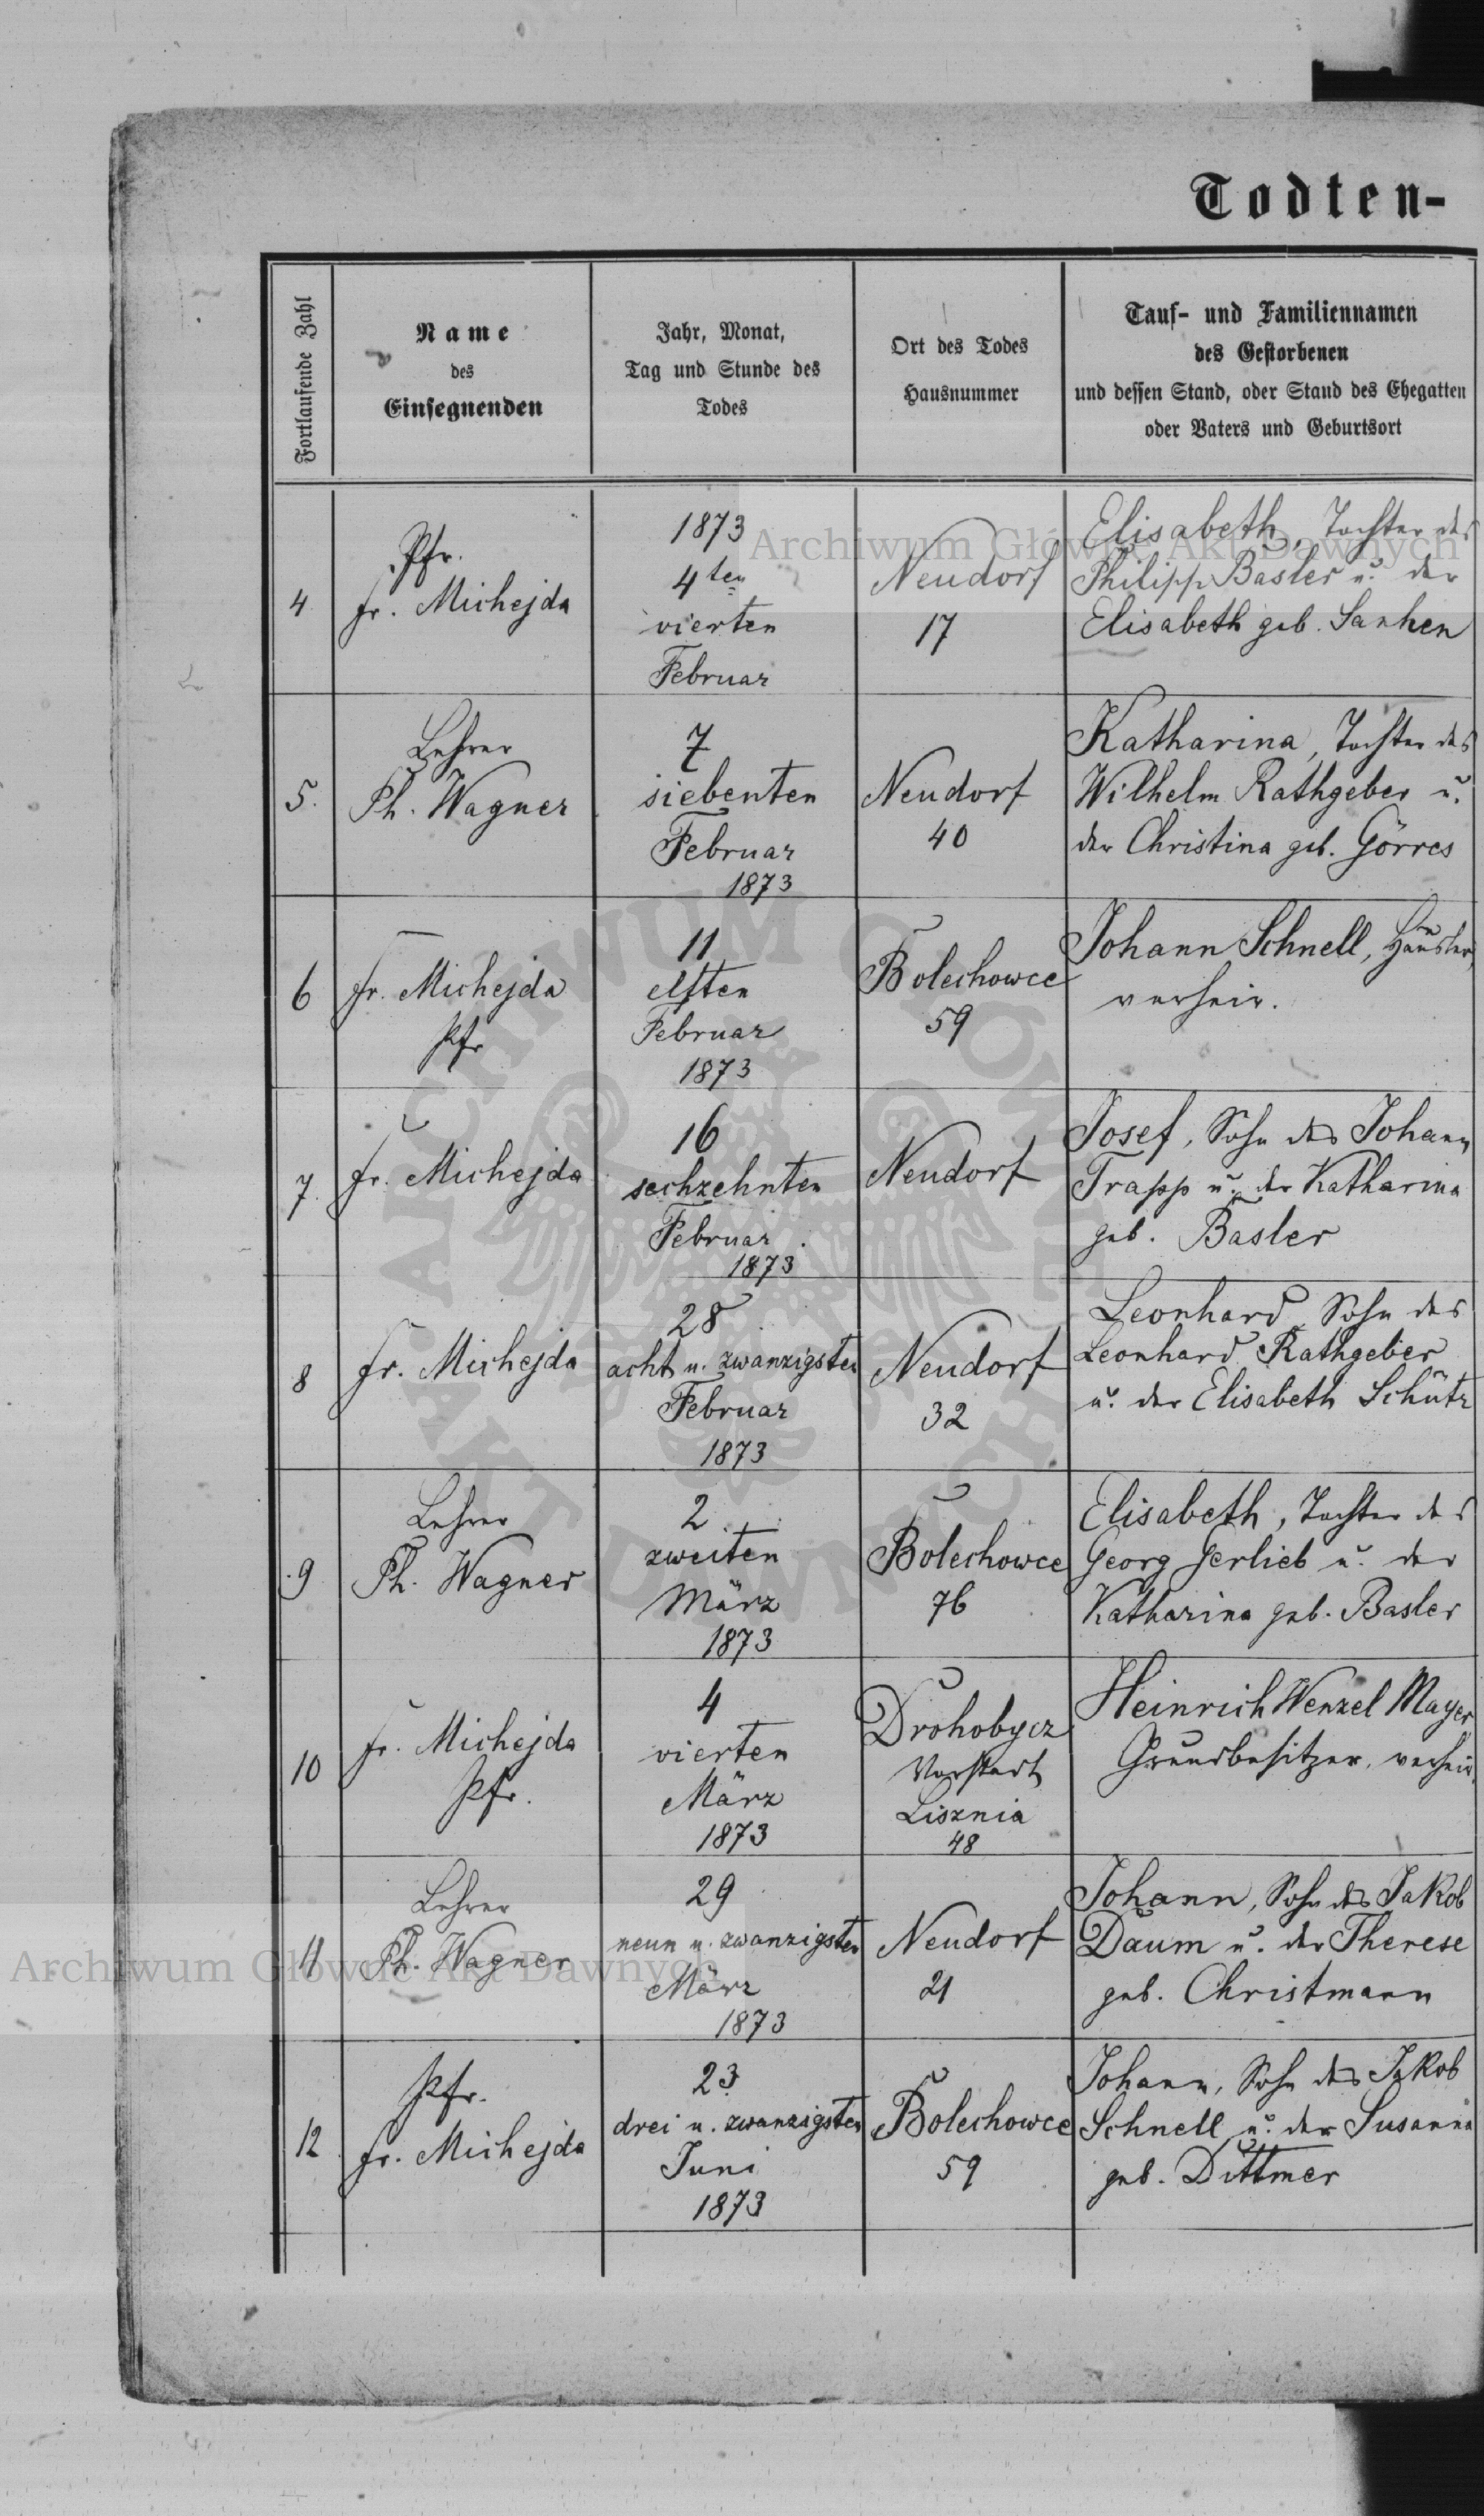 Todten-
Fortlaufende Zahl
Name
des
Einsegnenden
Jahr, Monat,
Tag und Stunde des
Todes
Ort des Todes
Hausnummer
Tauf- und Familiennamen
des Gestorbenen
und dessen Stand, oder Stand des Ehegatten
oder Vaters und Geburtsort
4
Pfr.
Fr. Michejda
1873
4ten
vierten
Februar
Neudorf
17
Elisabeth, Tochter des
Philipp Basler u. der
Elisabeth geb. Sanken
5.
Lehrer
Ph. Wagner
7
siebenten
Februar
1873
Neudorf
40
Katharina, Tochter des
Wilhelm Rathgeber u.
der Christina geb. Görres
6
Fr. Michejda
Pfr
11
elften
Februar
1873
Bolechowce
59
Johann Schnell, Häusler,
verheir.
7.
Fr. Michejda
16
sechzehnten
Februar
1873
Neudorf
Josef, Sohn des Johann
Trapp u. der Katharina
geb. Basler
8
Fr. Michejda
28
acht u. zwanzigsten
Februar
1873
Neudorf
32
Leonhard, Sohn des
Leonhard Rathgeber
u. der Elisabeth Schütz
9
Lehrer
Ph. Wagner
2
zweiten
März
1873
Bolechowce
76
Elisabeth, Tochter des
Georg Gerlieb u. der
Katharina geb. Basler
10
Fr. Michejda
Pfr.
4
vierten
März
1873
Drohobycz
Vorstadt
Lisznia
48
Heinrich Wenzel Mayer
Grundbesitzer, verheir.
11
Lehrer
Ph. Wagner
29
neun u. zwanzigsten
März
1873
Neudorf
21
Johann, Sohn des Jakob
Daum u. der Therese
geb. Christmann
12
Pfr.
Fr. Michejda
23
drei u. zwanzigsten
Juni
1873
Bolechowce
59
Johann, Sohn des Jakob
Schnell u. der Susanna
geb. Dittmer
Archiwum Główne Akt Dawnych
Archiwum Główne Akt Dawnych
ARCHIWUM GŁÓWNE AKT DAWNYCH